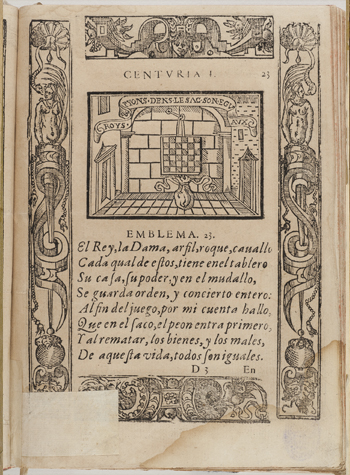 CENTVRIA I. 23
ROYS
PIONS DENS LE SAC SON EGV
AIX
EMBLEMA. 23.
El Rey, la Dama, arfil, roque, cauallo
Cada qual de estos, tiene en el tablero
Su casa, su poder, y en el mudallo,
Se guarda orden, y concierto entero:
Al fin del juego, por mi cuenta hallo,
Que en el saco, el peon entra primero,
Y al rematar, los bienes, y los males,
De aquesta vida, todos son iguales.
D 3 En